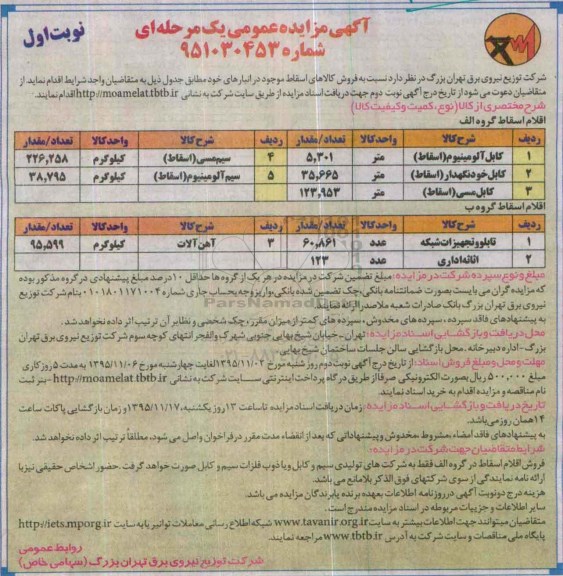 آگهی مزایده عمومی یک مرحله‌ای
شماره ۹۵۱۰۳۰۴۵۳
نوبت اول
شرکت توزیع نیروی برق تهران بزرگ در نظر دارد نسبت به فروش کالاهای اسقاط موجود در انبارهای خود مطابق جدول ذیل به متقاضیان واجد شرایط اقدام نماید. از
متقاضیان دعوت می شود از تاریخ درج آگهی نوبت دوم جهت دریافت اسناد مزایده از طریق سایت شرکت به نشانی http://moamelat.tbtb.ir اقدام نمایند.
شرح مختصری از کالا (نوع، کمیت و کیفیت کالا)
اقلام اسقاط گروه الف
ردیف شرح کالا واحد کالا تعداد/مقدار ردیف شرح کالا واحد کالا تعداد/مقدار
۱ کابل آلومینیوم (اسقاط) متر ۵,۳۰۱ ۴ سیم مسی (اسقاط) کیلوگرم ۲۲۶,۲۵۸
۲ کابل خودنگهدار (اسقاط) متر ۳۵,۶۶۵ ۵ سیم آلومینیوم (اسقاط) کیلوگرم ۳۸,۷۹۵
۳ کابل مسی (اسقاط) متر ۱۲۳,۹۵۳
اقلام اسقاط گروه ب
ردیف شرح کالا واحد کالا تعداد/مقدار ردیف شرح کالا واحد کالا تعداد/مقدار
۱ تابلو و تجهیزات شبکه عدد ۶۰,۸۶۱ ۳ آهن آلات کیلوگرم ۹۵,۵۹۹
۲ اثاثه اداری عدد ۱۲۳
مبلغ و نوع سپرده شرکت در مزایده: مبلغ تضمین شرکت در مزایده در هر یک از گروه ها حداقل ۱۰ درصد مبلغ پیشنهادی در گروه مذکور بوده
که مزایده گران می بایست بصورت ضمانتنامه بانکی، چک تضمین شده بانکی و واریز وجه بحساب جاری شماره ۰۱۰۱۸۰۱۱۷۱۰۰۴ بنام شرکت توزیع
نیروی برق تهران بزرگ بانک صادرات شعبه ملاصدرا ارائه نمایند.
به پیشنهادهای فاقد سپرده، سپرده های مخدوش، سپرده های کمتر از میزان مقرر، چک شخصی و نظایر آن ترتیب اثر داده نخواهد شد.
محل دریافت و بازگشایی اسناد مزایده: تهران - خیابان شیخ بهایی جنوبی شهرک والفجر انتهای کوچه سوم شرکت توزیع نیروی برق تهران
بزرگ - اداره دبیرخانه. محل بازگشایی سالن جلسات ساختمان شیخ بهایی
مهلت و محل و مبلغ فروش اسناد: از تاریخ درج آگهی نوبت دوم روز شنبه مورخ ۱۳۹۵/۱۱/۰۲ لغایت چهارشنبه مورخ ۱۳۹۵/۱۱/۰۶ به مدت ۵ روز کاری
مبلغ ۵۰۰,۰۰۰ ریال بصورت الکترونیکی صرفا از طریق درگاه پرداخت اینترنتی سایت شرکت به نشانی http://moamelat.tbtb.ir - بنر ثبت
نام مناقصه و مزایده اقدام به خرید اسناد نمایند.
تاریخ دریافت و بازگشایی اسناد مزایده: زمان دریافت اسناد مزایده تا ساعت ۱۳ روز یکشنبه، ۱۳۹۵/۱۱/۱۷ و زمان بازگشایی پاکات ساعت
۱۴ همان روز می باشد.
به پیشنهادهای فاقد امضاء، مشروط، مخدوش و پیشنهاداتی که بعد از انقضاء مدت مقرر در فراخوان واصل می شود، مطلقاً ترتیب اثر داده نخواهد شد.
شرایط متقاضیان جهت شرکت در مزایده:
فروش اقلام اسقاط در گروه الف فقط به شرکت های تولیدی سیم و کابل و یا ذوب فلزات سیم و کابل صورت خواهد گرفت. حضور اشخاص حقیقی نیز با
ارائه نامه نمایندگی از سوی شرکتهای فوق الذکر بلامانع می باشد.
هزینه درج دو نوبت آگهی در روزنامه اطلاعات بعهده برنده یا برندگان مزایده می باشد.
سایر اطلاعات و جزییات مربوطه در اسناد مزایده مندرج است.
متقاضیان میتوانند جهت اطلاعات بیشتر به سایت www.tavanir.org.ir شبکه اطلاع رسانی معاملات توانیر یا به سایت http://iets.mporg.ir
پایگاه ملی مناقصات و سایت شرکت به آدرس www.tbtb.ir مراجعه نمایند.
روابط عمومی
شرکت توزیع نیروی برق تهران بزرگ (سهامی خاص)